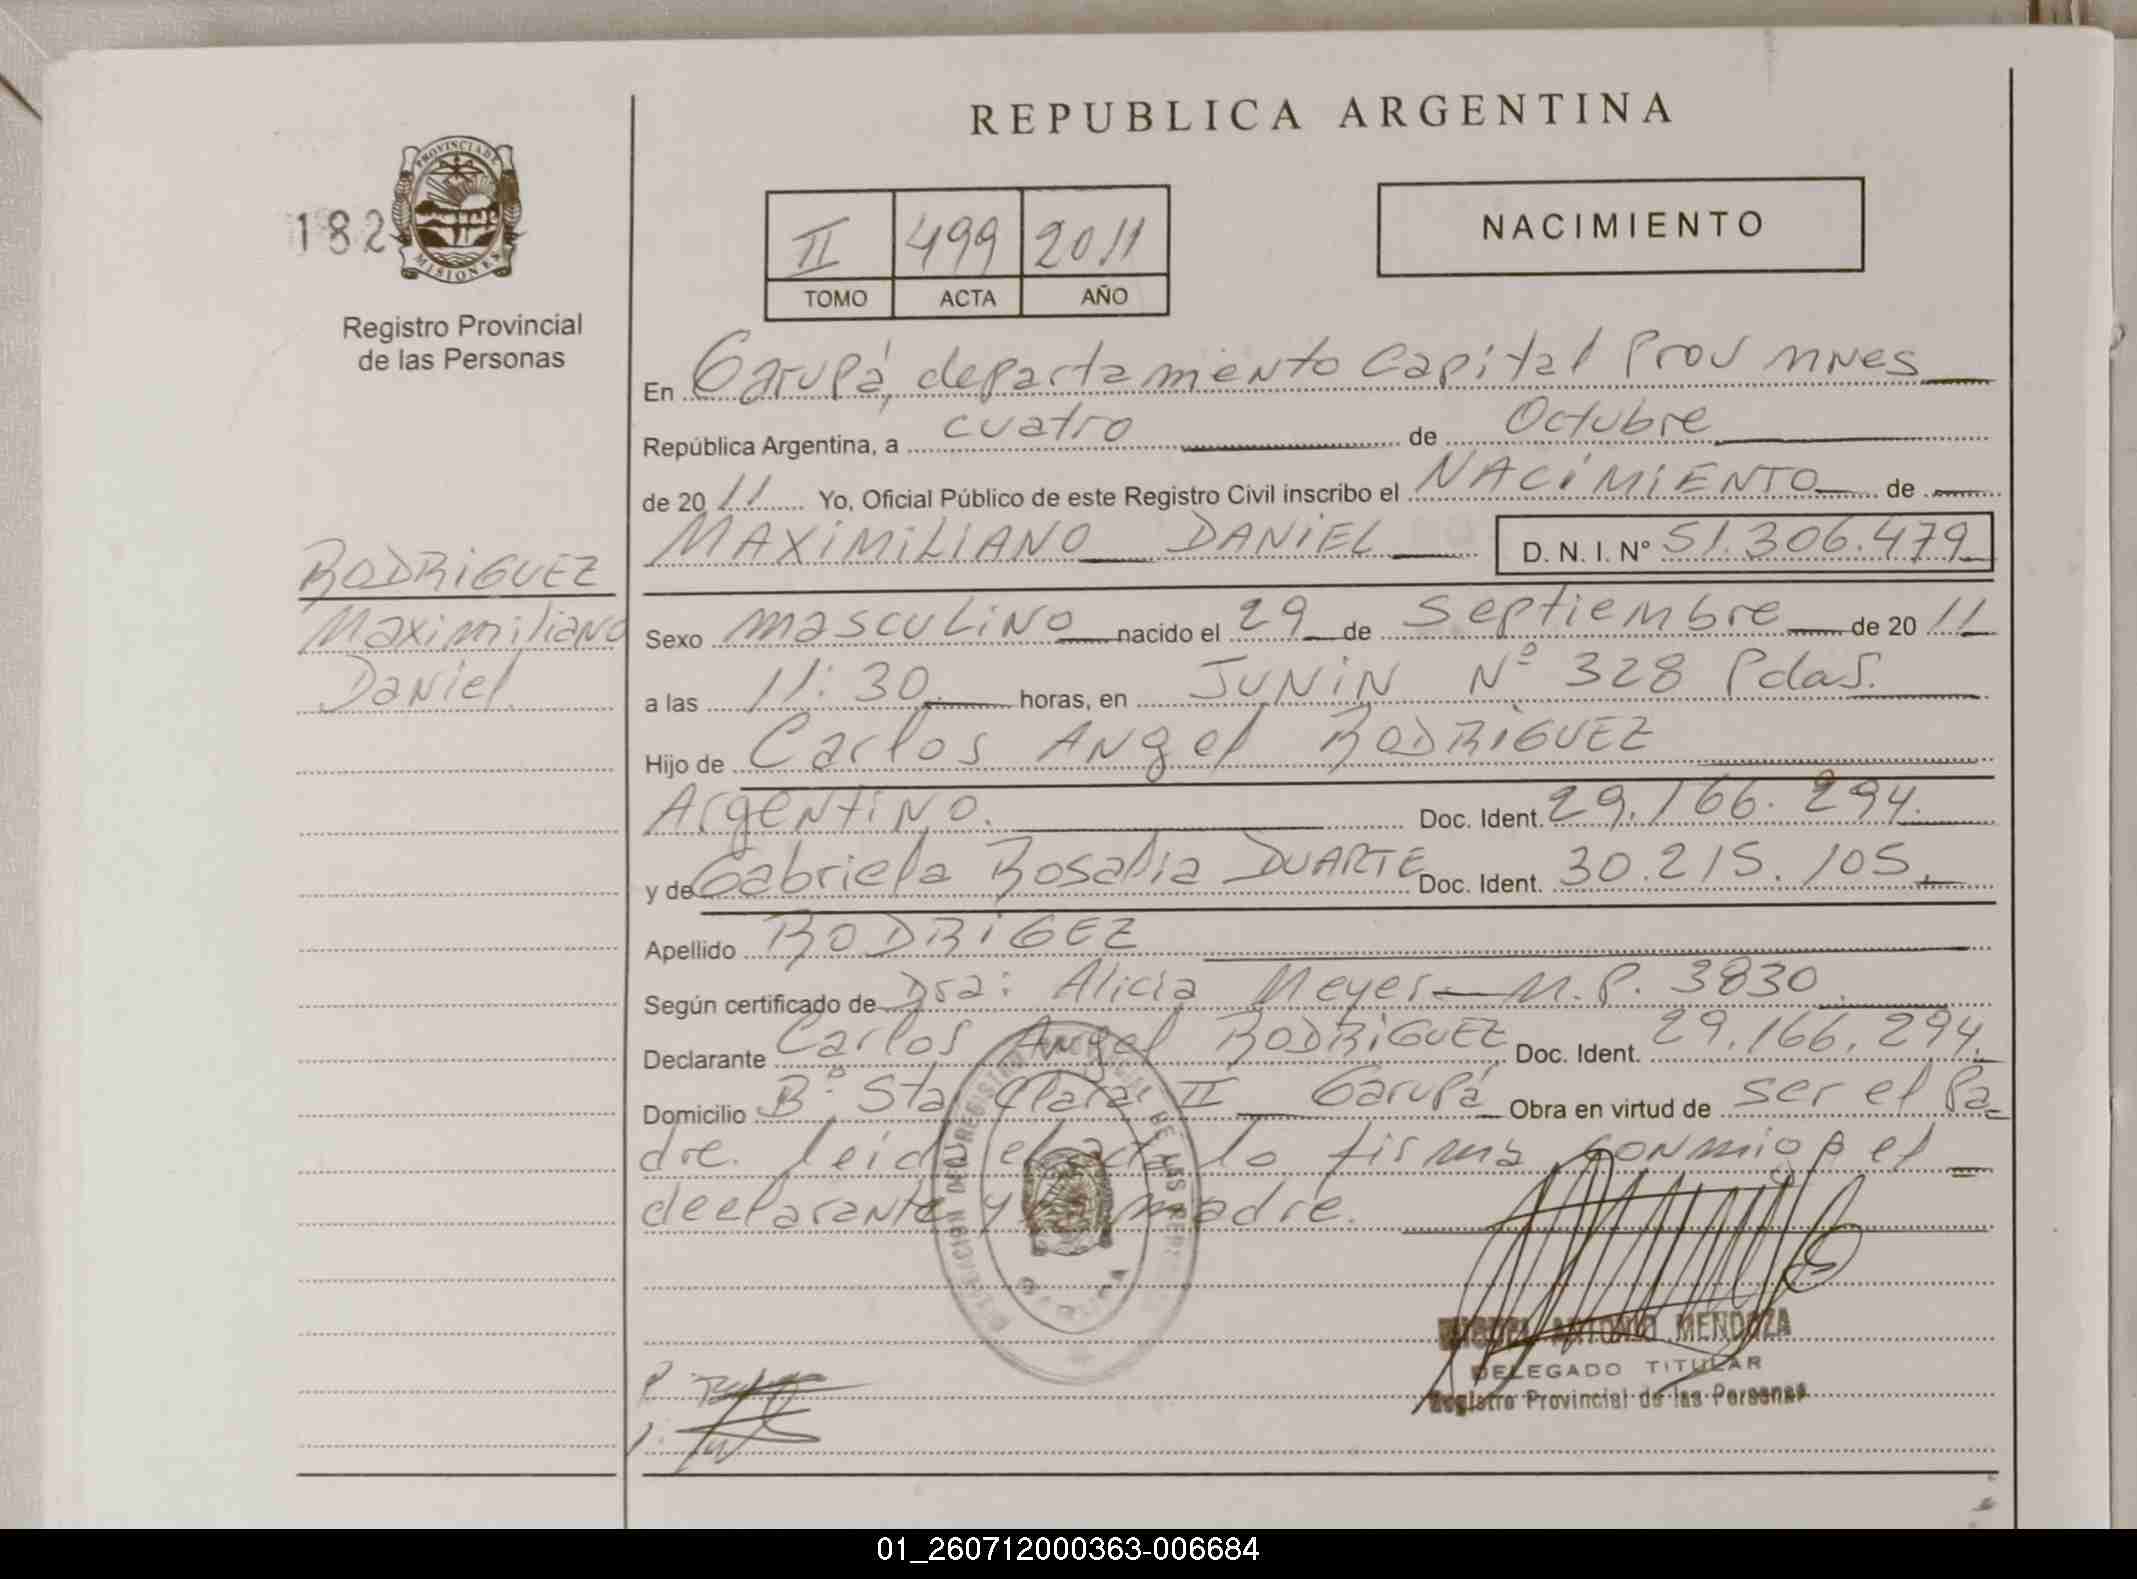 REPUBLICA ARGENTINA
182
PROVINCIA DE
MISIONES
Registro Provincial
de las Personas
II 499 2011
TOMO ACTA AÑO
NACIMIENTO
En Garupá, departamento Capital Prov Mnes
República Argentina, a cuatro de Octubre
de 2011 Yo, Oficial Público de este Registro Civil inscribo el NACIMIENTO de
MAXIMILIANO DANIEL D. N. I. N° 51.306.479
RODRIGUEZ
Maximiliano
Daniel.
Sexo masculino nacido el 29 de Septiembre de 2011
a las 11:30. horas, en JUNIN Nº 328 Pdas.
Hijo de Carlos Angel RODRIGUEZ
Argentino. Doc. Ident. 29.166.294.
y de Gabriela Rosalia DUARTE Doc. Ident. 30.215.105.
Apellido RODRIGEZ
Según certificado de Dra: Alicia Meyer M.P. 3830.
Declarante Carlos Angel RODRIGUEZ Doc. Ident. 29.166.294.
Domicilio Bº Sta Clara II Garupá Obra en virtud de ser el Pa-
dre. leida el acta lo firma conmigo el
declarante y la madre.
MIGUEL ANTONIO MENDOZA
DELEGADO TITULAR
Registro Provincial de las Personas
01_260712000363-006684